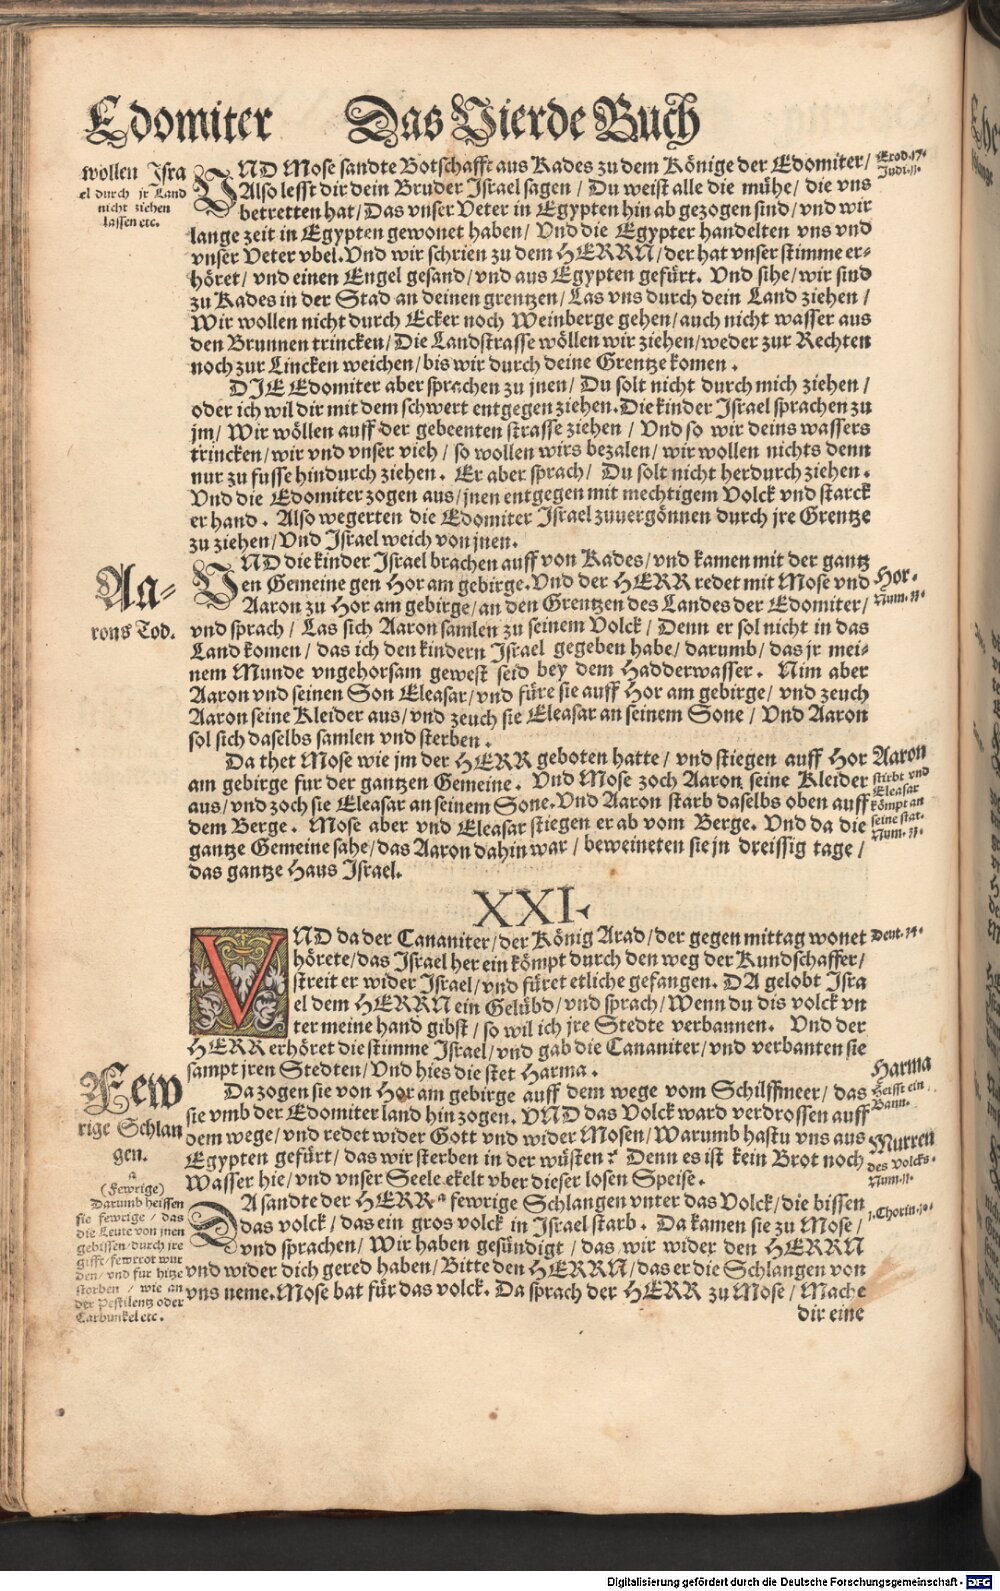 Edomiter Das Vierde Buch
wollen Isra
el durch jr Land
nicht ziehen
lassen etc.
VND Mose sandte Botschafft aus Kades zu dem Könige der Edomiter/
Also lesst dir dein Bruder Israel sagen/ Du weist alle die mühe/ die vns
betretten hat/ Das vnser Veter in Egypten hin ab gezogen sind/ vnd wir
lange zeit in Egypten gewonet haben/ Vnd die Egypter handelten vns vnd
vnser Veter vbel. Vnd wir schrien zu dem HERRN/ der hat vnser stimme er-
höret/ vnd einen Engel gesand/ vnd aus Egypten gefürt. Vnd sihe/ wir sind
zu Kades in der Stad an deinen grentzen/ Las vns durch dein Land ziehen/
Wir wollen nicht durch Ecker noch Weinberge gehen/ auch nicht wasser aus
den Brunnen trincken/ Die Landstrasse wöllen wir ziehen/ weder zur Rechten
noch zur Lincken weichen/ bis wir durch deine Grentze komen.
Exod. 17.
Judi. 11.
DIE Edomiter aber sprachen zu jnen/ Du solt nicht durch mich ziehen/
oder ich wil dir mit dem schwert entgegen ziehen. Die kinder Israel sprachen zu
jm/ Wir wöllen auff der gebeenten strasse ziehen/ Vnd so wir deins wassers
trincken/ wir vnd vnser vieh/ so wollen wirs bezalen/ wir wollen nichts denn
nur zu fusse hindurch ziehen. Er aber sprach/ Du solt nicht herdurch ziehen.
Vnd die Edomiter zogen aus/ jnen entgegen mit mechtigem Volck vnd starck
er hand. Also wegerten die Edomiter Israel zuuergönnen durch jre Grentze
zu ziehen/ Vnd Israel weich von jnen.
Aa-
rons Tod.
VND die kinder Israel brachen auff von Kades/ vnd kamen mit der gantz
en Gemeine gen Hor am gebirge. Vnd der HERR redet mit Mose vnd
Aaron zu Hor am gebirge/ an den Grentzen des Landes der Edomiter/
vnd sprach/ Las sich Aaron samlen zu seinem Volck/ Denn er sol nicht in das
Land komen/ das ich den kindern Israel gegeben habe/ darumb/ das jr mei-
nem Munde vngehorsam gewest seid bey dem Hadderwasser. Nim aber
Aaron vnd seinen Son Eleasar/ vnd füre sie auff Hor am gebirge/ vnd zeuch
Aaron seine Kleider aus/ vnd zeuch sie Eleasar an seinem Sone/ Vnd Aaron
sol sich daselbs samlen vnd sterben.
Hor.
Num. 33.
Da thet Mose wie jm der HERR geboten hatte/ vnd stiegen auff Hor
am gebirge fur der gantzen Gemeine. Vnd Mose zoch Aaron seine Kleider
aus/ vnd zoch sie Eleasar an seinem Sone. Vnd Aaron starb daselbs oben auff
dem Berge. Mose aber vnd Eleasar stiegen er ab vom Berge. Vnd da die
gantze Gemeine sahe/ das Aaron dahin war/ beweineten sie jn dreissig tage/
das gantze Haus Israel.
Aaron
stirbt vnd
Eleasar
kömpt an
seine stat.
Num. 33.
XXI.
VND da der Cananiter/ der König Arad/ der gegen mittag wonet
hörete/ das Israel her ein kömpt durch den weg der Kundschaffer/
streit er wider Israel/ vnd füret etliche gefangen. DA gelobt Isra
el dem HERRN ein Gelübd/ vnd sprach/ Wenn du dis volck vn
ter meine hand gibst/ so wil ich jre Stedte verbannen. Vnd der
HERR erhöret die stimme Israel/ vnd gab die Cananiter/ vnd verbanten sie
sampt jren Stedten/ Vnd hies die stet Harma.
Harma
Heisst ein
Bann.
Few
rige Schlan
gen.
Da zogen sie von Hor am gebirge auff dem wege vom Schilffmeer/ das
sie vmb der Edomiter land hin zogen. VND das Volck ward verdrossen auff
dem wege/ vnd redet wider Gott vnd wider Mosen/ Warumb hastu vns aus
Egypten gefürt/ das wir sterben in der wüsten? Denn es ist kein Brot noch
Wasser hie/ vnd vnser Seele ekelt vber dieser losen Speise.
Murren
des volcks.
Num. 11.
a
(Fewrige)
Darumb heissen
sie fewrige/ das
die Leute von jnen
gebissen/ durch jre
gifft/ fewrrot wur
den/ vnd fur hitze
storben/ wie an
der Pestilentz oder
Carbunkel etc.
DA sandte der HERR a fewrige Schlangen vnter das Volck/ die bissen
das volck/ das ein gros volck in Israel starb. Da kamen sie zu Mose/
vnd sprachen/ Wir haben gesündigt/ das wir wider den HERRN
vnd wider dich gered haben/ Bitte den HERRN/ das er die Schlangen von
vns neme. Mose bat für das volck. Da sprach der HERR zu Mose/ Mache
1. Chorin. 10.
dir eine
Digitalisierung gefördert durch die Deutsche Forschungsgemeinschaft - DFG